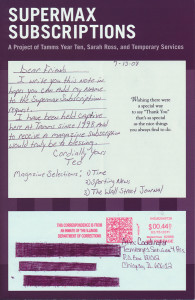 SUPERMAX
SUBSCRIPTIONS
A Project of Tamms Year Ten, Sarah Ross, and Temporary Services
9-13-08
Dear Friends,
I write you this note in
hopes you can add my name
to the Supermax Subscription
request.
I have been held captive
here at Tamms since 1998 and
to receive a magazine Subscription
would truly be a blessing.
Cordially Yours
Ted
Magazine Selections: 1) Time
2) Sporting News
3) The Wall Street Journal
Wishing there were
a special way
to say "Thank You"
that's as special
as the nice things
you always find to do.
THIS CORRESPONDENCE IS FROM
AN INMATE OF THE ILLINOIS
DEPARTMENT OF CORRECTIONS
$00.44
Attn: Coordinator
Temporary Services
P.O. Box
Chicago, IL 60612